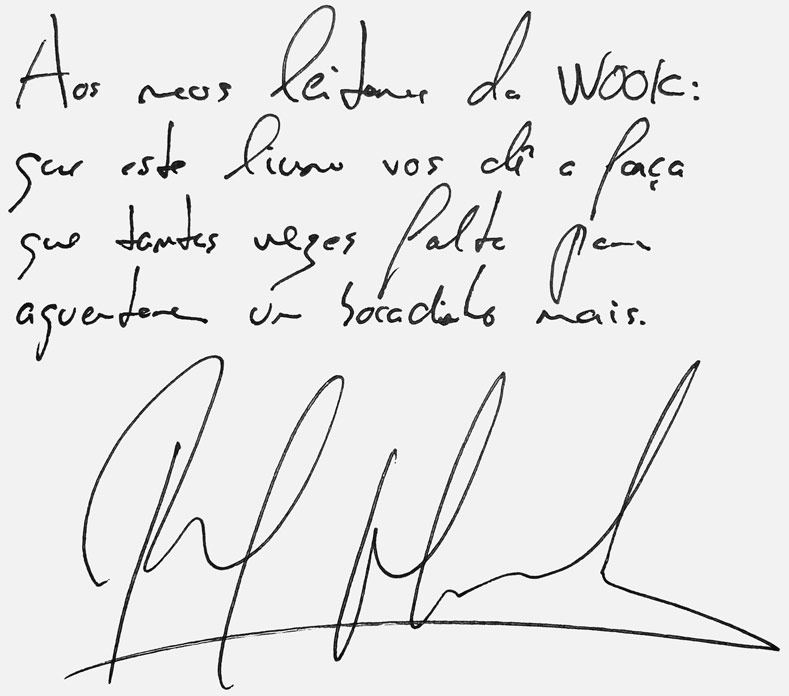 Aos meus leitores da WOOK:
que este livro vos dê a força
que tantas vezes falta para
aguentarem um bocadinho mais.